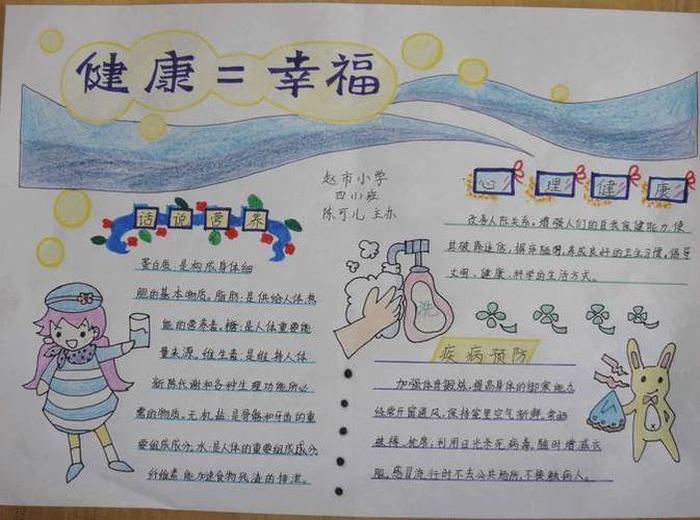 健康=幸福
赵市小学
四(1)班
陈可儿 主办
话说营养
蛋白质:是构成身体细
胞的基本物质。脂肪:是供给人体热
能的营养素。糖:是人体重要能
量来源。维生素:是维持人体
新陈代谢和各种生理功能所必
需的物质。无机盐:是骨骼和牙齿的重
要组成成分。水:是人体的重要组成成分。
纤维素:能加速食物残渣的排泄。
心理健康
改善人际关系,增强人们的自我保健能力,使
其破除迷信,摒弃陋习,养成良好的卫生习惯,倡导
文明、健康、科学的生活方式。
洗
疾病预防
加强体育锻炼,提高身体的御寒能力
经常开窗通风,保持室里空气新鲜,常晒
被褥、枕席;利用日光杀死病毒,随时增减衣
服。感冒流行时不去公共场所,不接触病人。